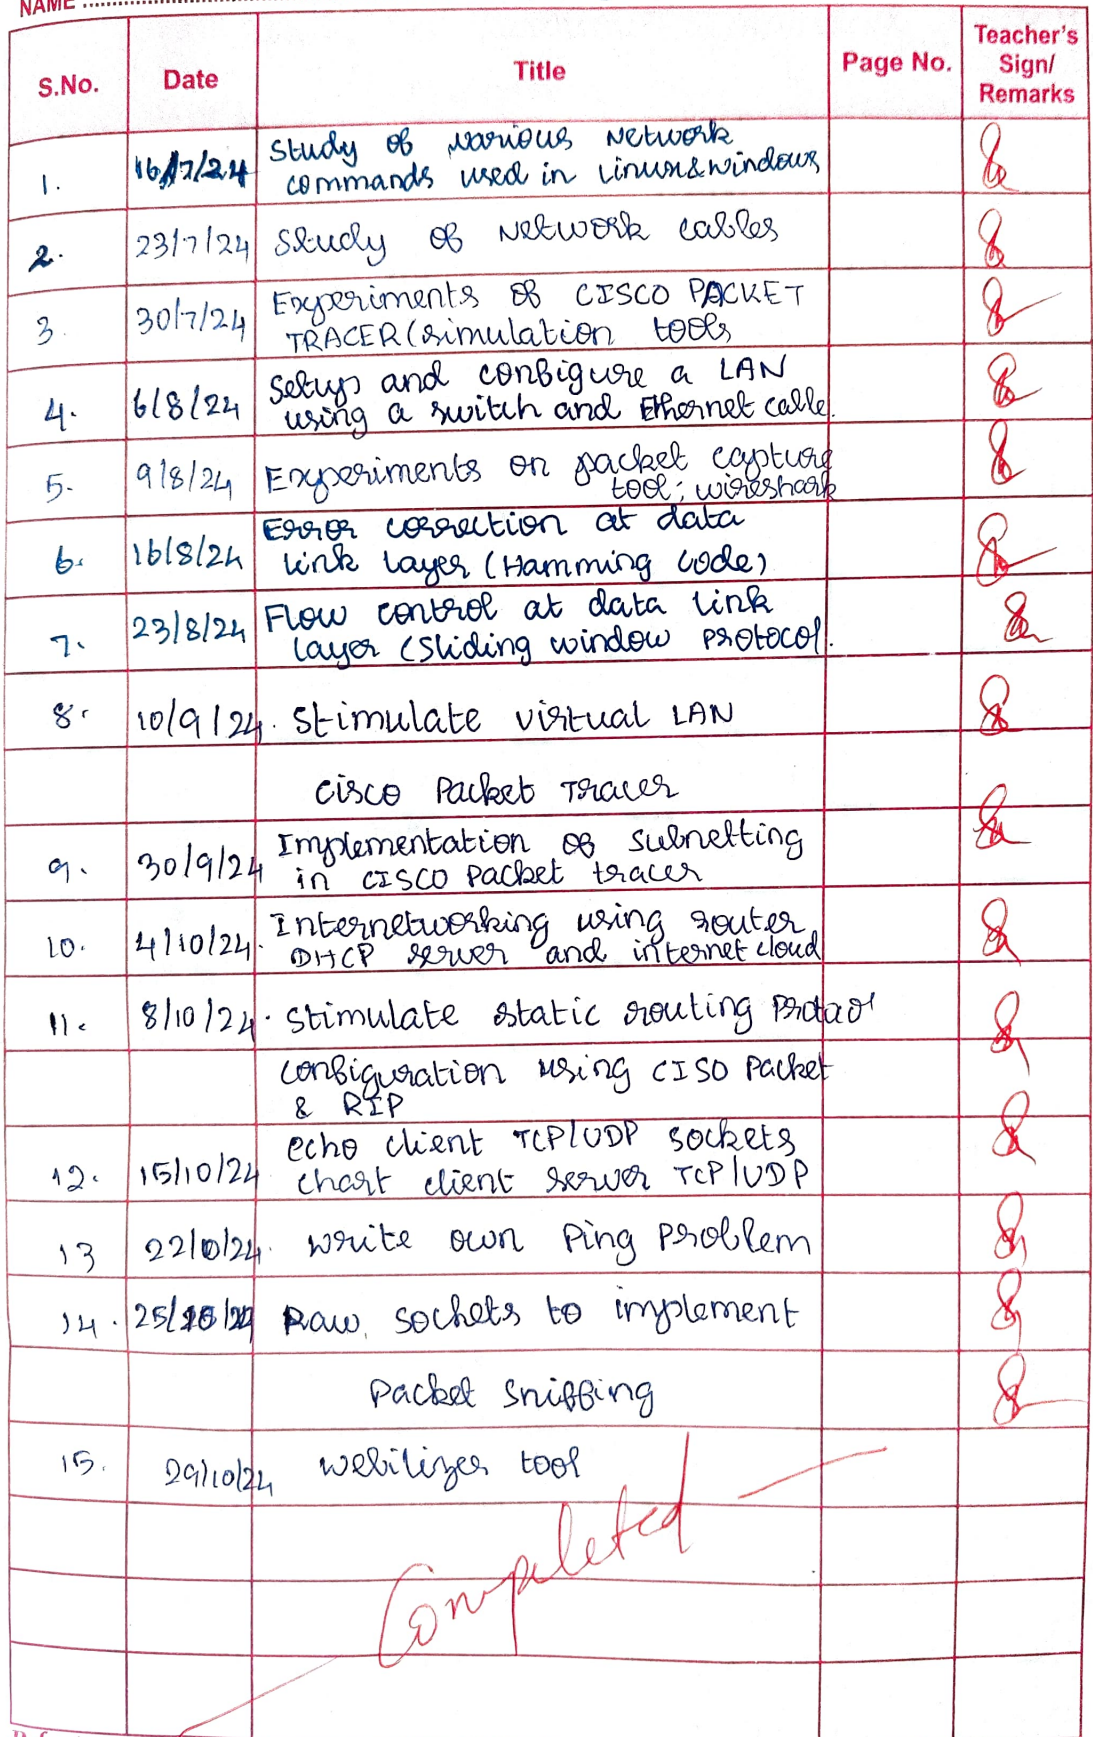 NAME
S.No. Date Title Page No. Teacher's Sign/ Remarks
1. 16/7/24 Study of various Network
commands used in Linux&windows
2. 23/7/24 Study of Network cables
3 30/7/24 Experiments of CISCO PACKET
TRACER(simulation tools
4. 6/8/24 Setup and configure a LAN
using a switch and Ethernet cable.
5. 9/8/24 Experiments on packet capture
tool; wireshark
6. 16/8/24 Error correction at data
link layer (Hamming code)
7. 23/8/24 Flow control at data link
layer (Sliding window protocol.
8. 10/9/24. Stimulate virtual LAN
cisco Packet Tracer
9. 30/9/24 Implementation of subnetting
in CISCO Packet tracer
10. 4/10/24. Internetworking using router
DHCP server and internet cloud
11. 8/10/24. Stimulate static routing
configuration using CISO Packet
& RIP
12. 15/10/24 echo client TCP/UDP sockets
chart client server TCP/UDP
13 22/10/24. write own Ping Problem
14. Raw sockets to implement
Packet Sniffing
15. 29/10/24 webilizer tool
Completed